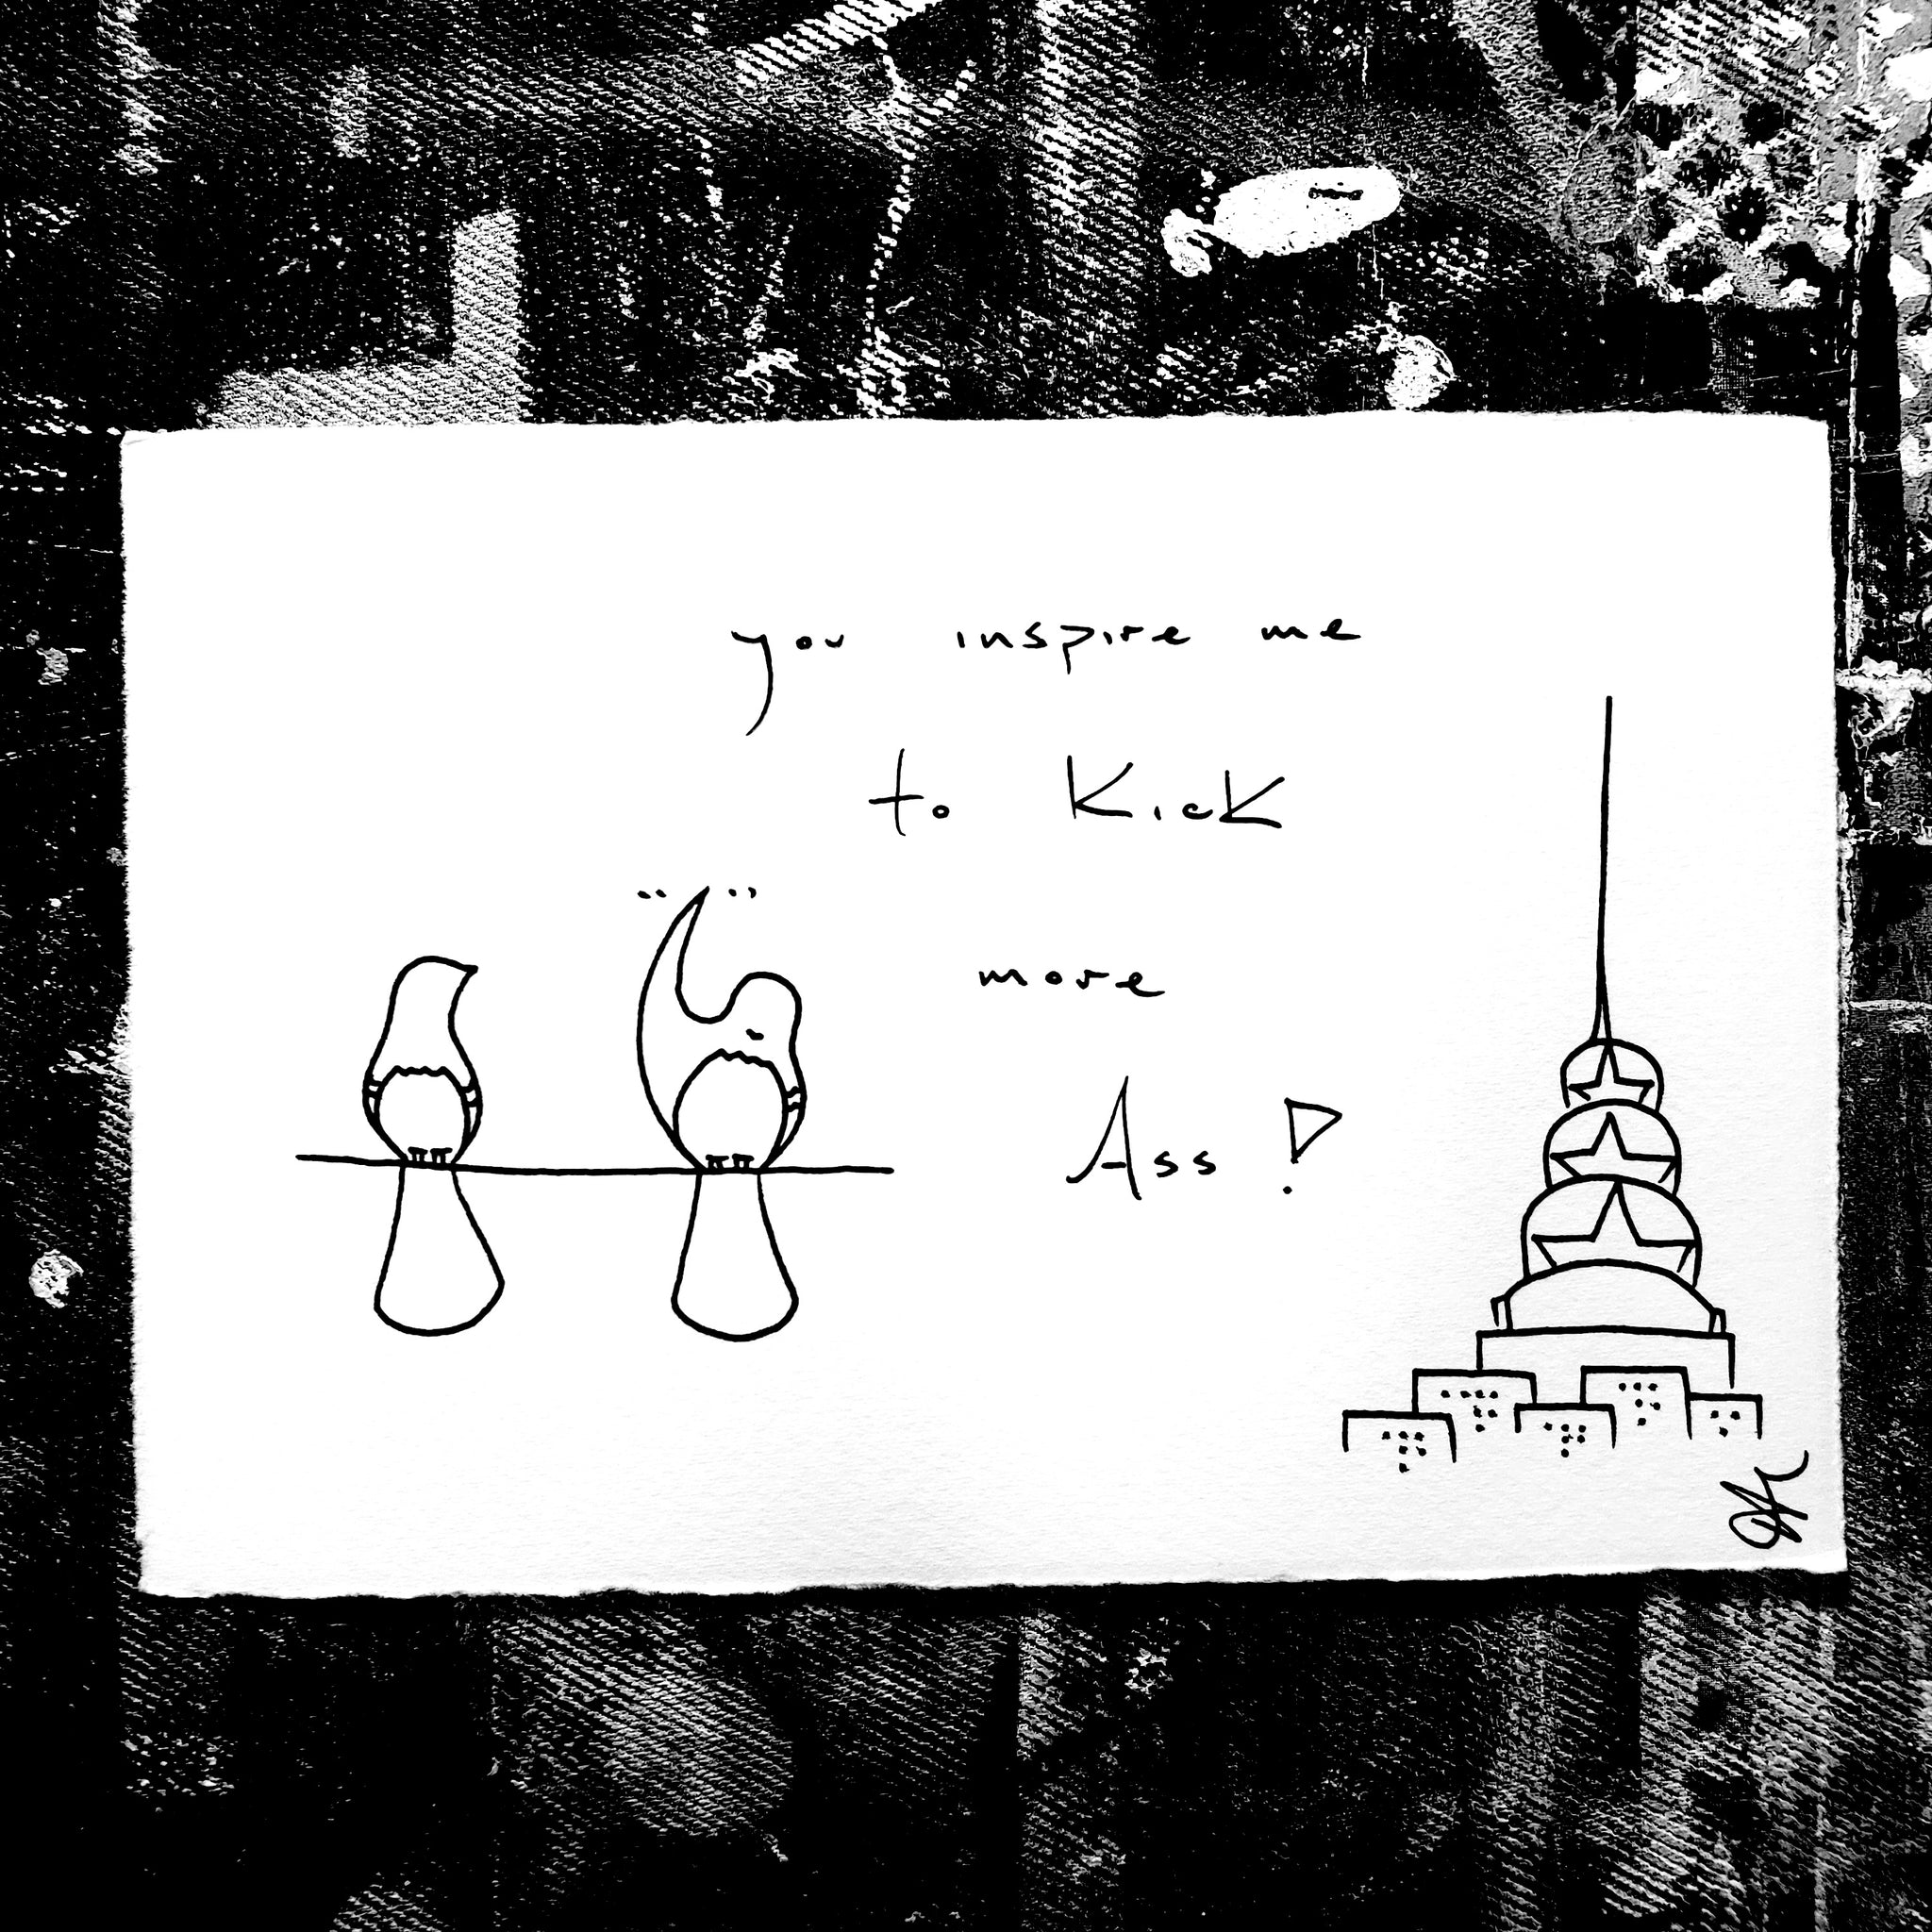 you inspire me
to Kick
more
Ass!